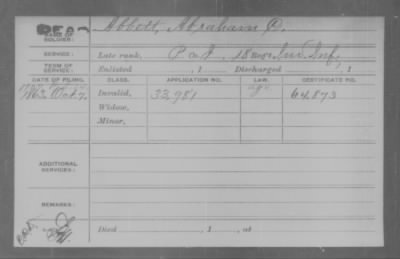 DEAD
NAME OF SOLDIER: Abbott, Abraham D.
SERVICE: Late rank, 18 Regt Ind. Inf,
TERM OF SERVICE: Enlisted , 1 Discharged , 1
DATE OF FILING. CLASS. APPLICATION NO. LAW. CERTIFICATE NO.
Invalid, 33,981 64,873
Widow,
Minor,
ADDITIONAL SERVICES:
REMARKS:
Died , 1 , at